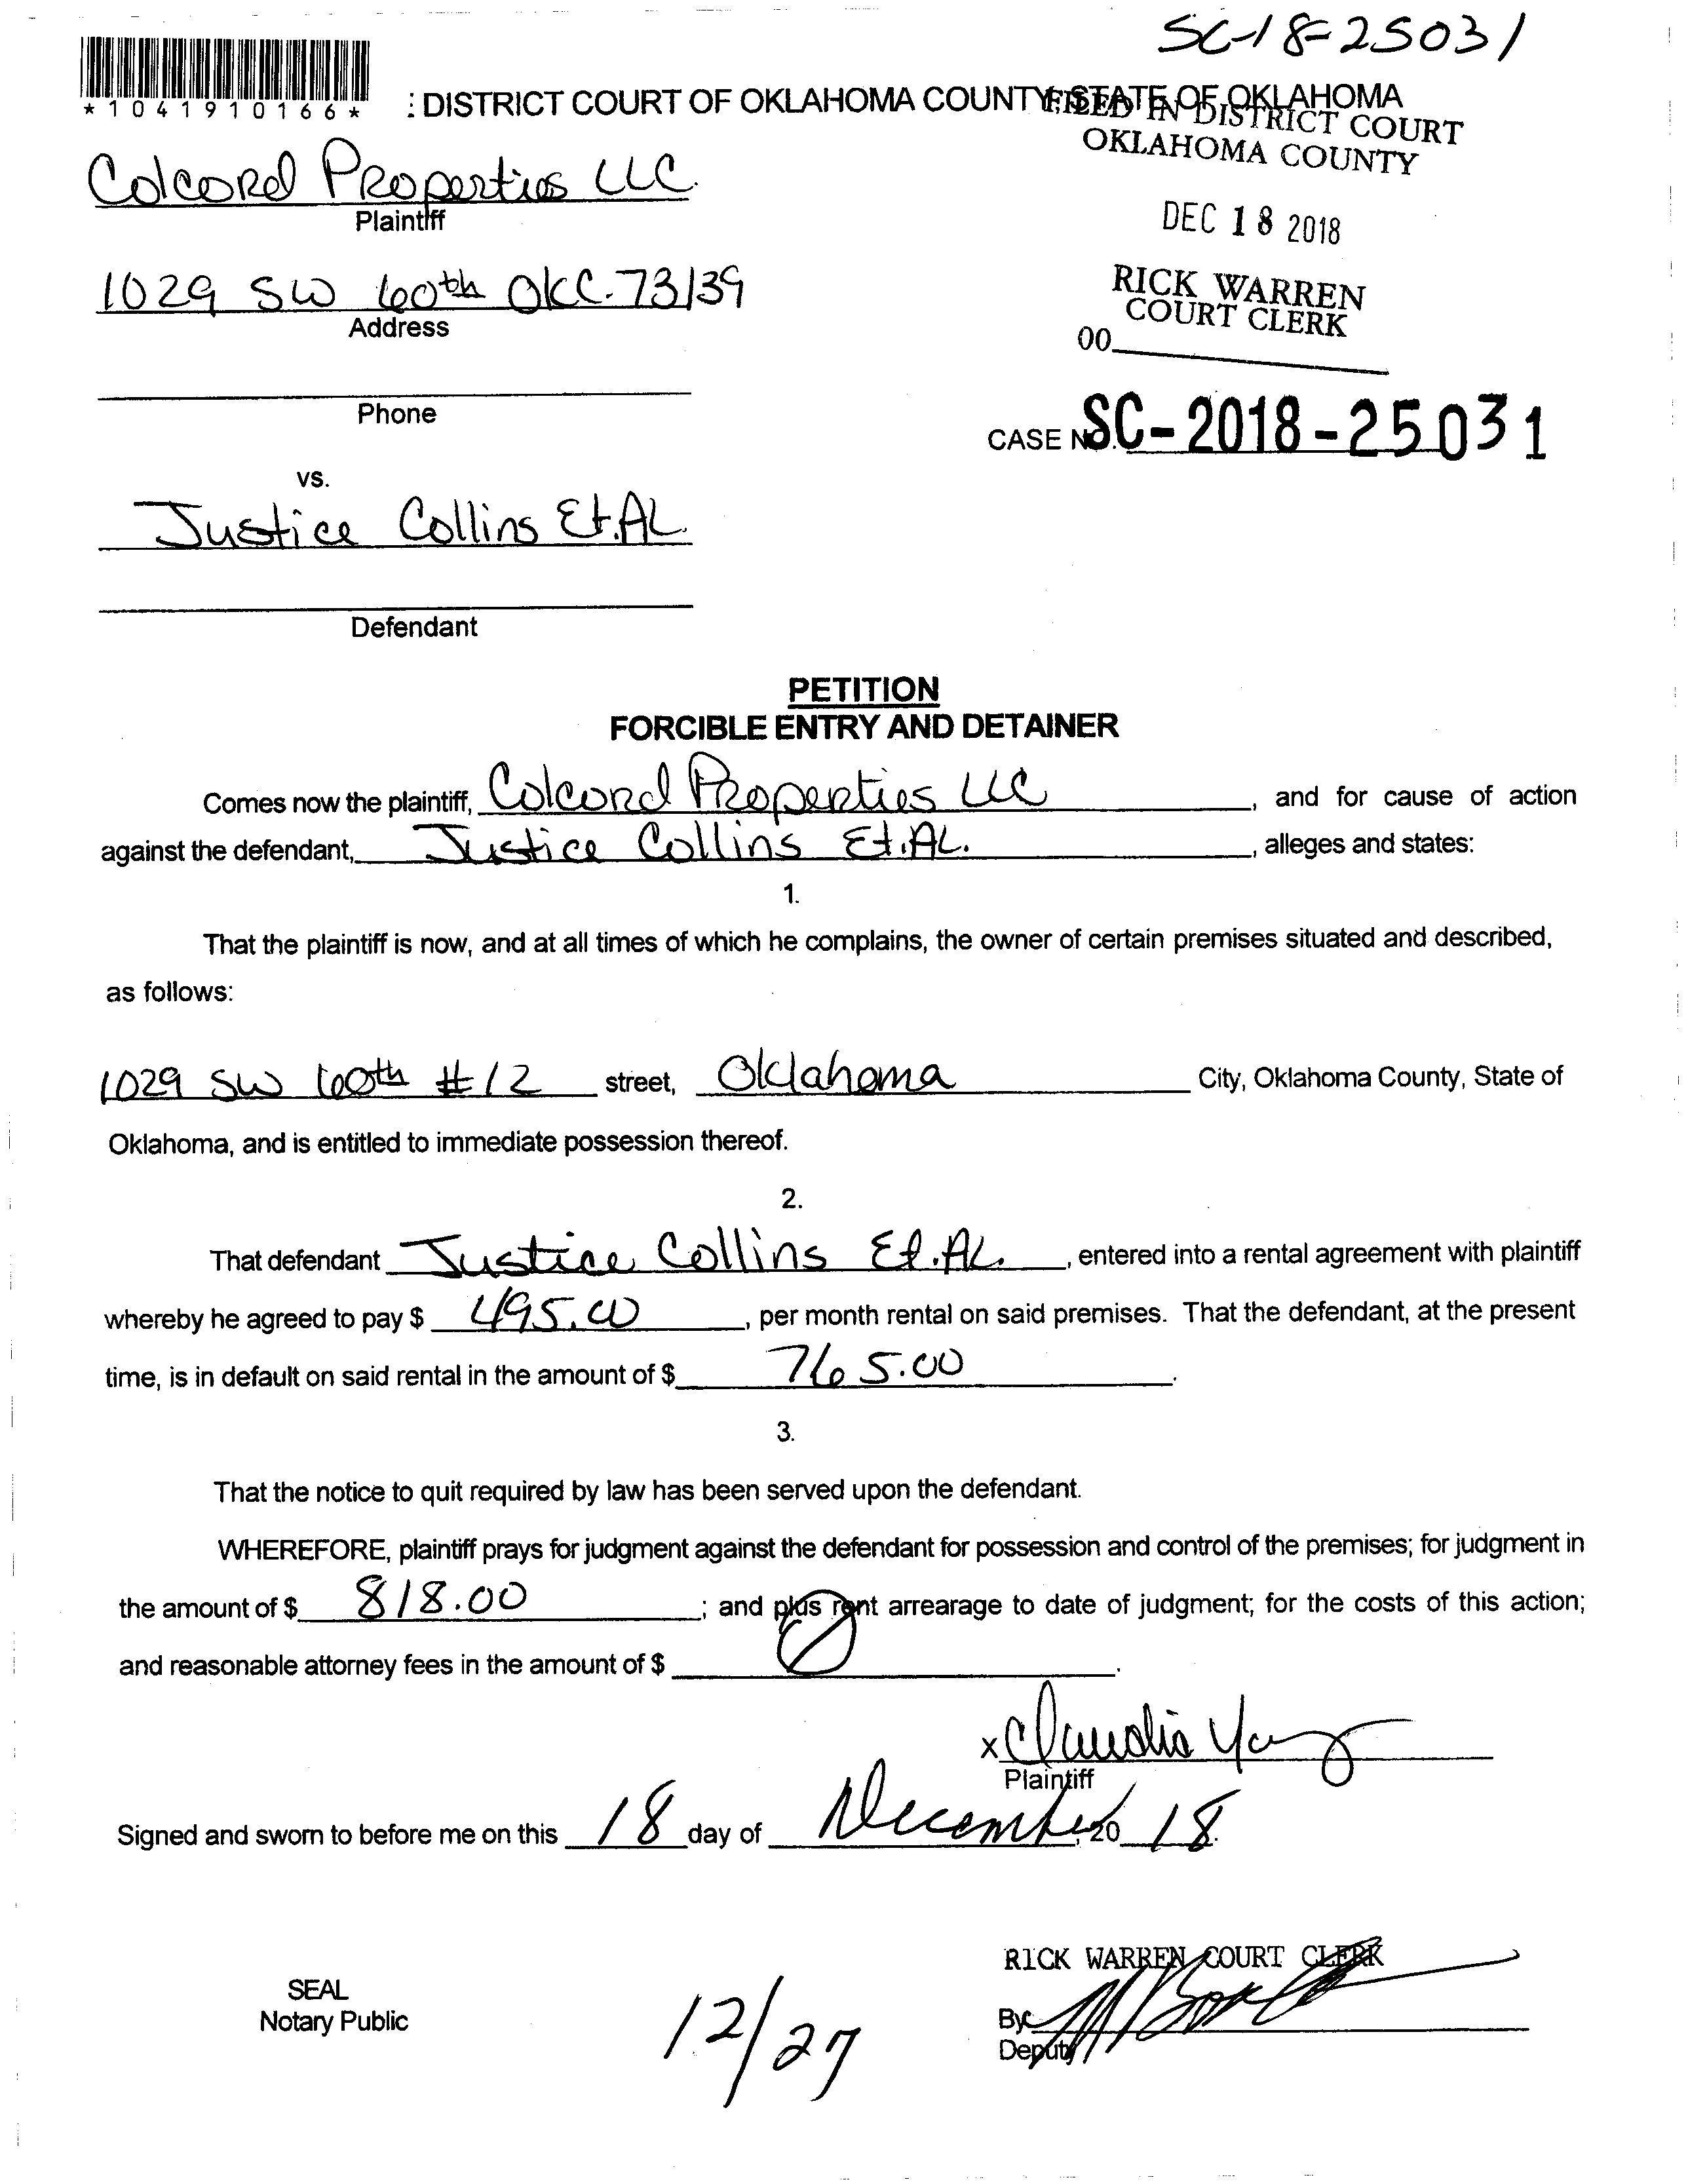 SC-18-25031
*1041910166*
: DISTRICT COURT OF OKLAHOMA COUNTY, STATE OF OKLAHOMA
FILED IN DISTRICT COURT
OKLAHOMA COUNTY
Colcord Properties LLC.
Plaintiff
DEC 18 2018
1029 SW 60th OKC. 73139
Address
RICK WARREN
COURT CLERK
00
Phone
CASE NO. SC-2018-25031
vs.
Justice Collins Et.AL
Defendant
PETITION
FORCIBLE ENTRY AND DETAINER
Comes now the plaintiff, Colcord Properties LLC, and for cause of action
against the defendant, Justice Collins Et.AL., alleges and states:
1.
That the plaintiff is now, and at all times of which he complains, the owner of certain premises situated and described,
as follows:
1029 SW 60th #12 street, Oklahoma City, Oklahoma County, State of
Oklahoma, and is entitled to immediate possession thereof.
2.
That defendant Justice Collins Et.AL., entered into a rental agreement with plaintiff
whereby he agreed to pay $ 495.00, per month rental on said premises. That the defendant, at the present
time, is in default on said rental in the amount of $ 765.00.
3.
That the notice to quit required by law has been served upon the defendant.
WHEREFORE, plaintiff prays for judgment against the defendant for possession and control of the premises; for judgment in
the amount of $ 818.00; and plus rent arrearage to date of judgment; for the costs of this action;
and reasonable attorney fees in the amount of $ .
x Claudia
Plaintiff
Signed and sworn to before me on this 18 day of December, 20 18.
RICK WARREN COURT CLERK
SEAL
Notary Public
12/27
By:
Deputy